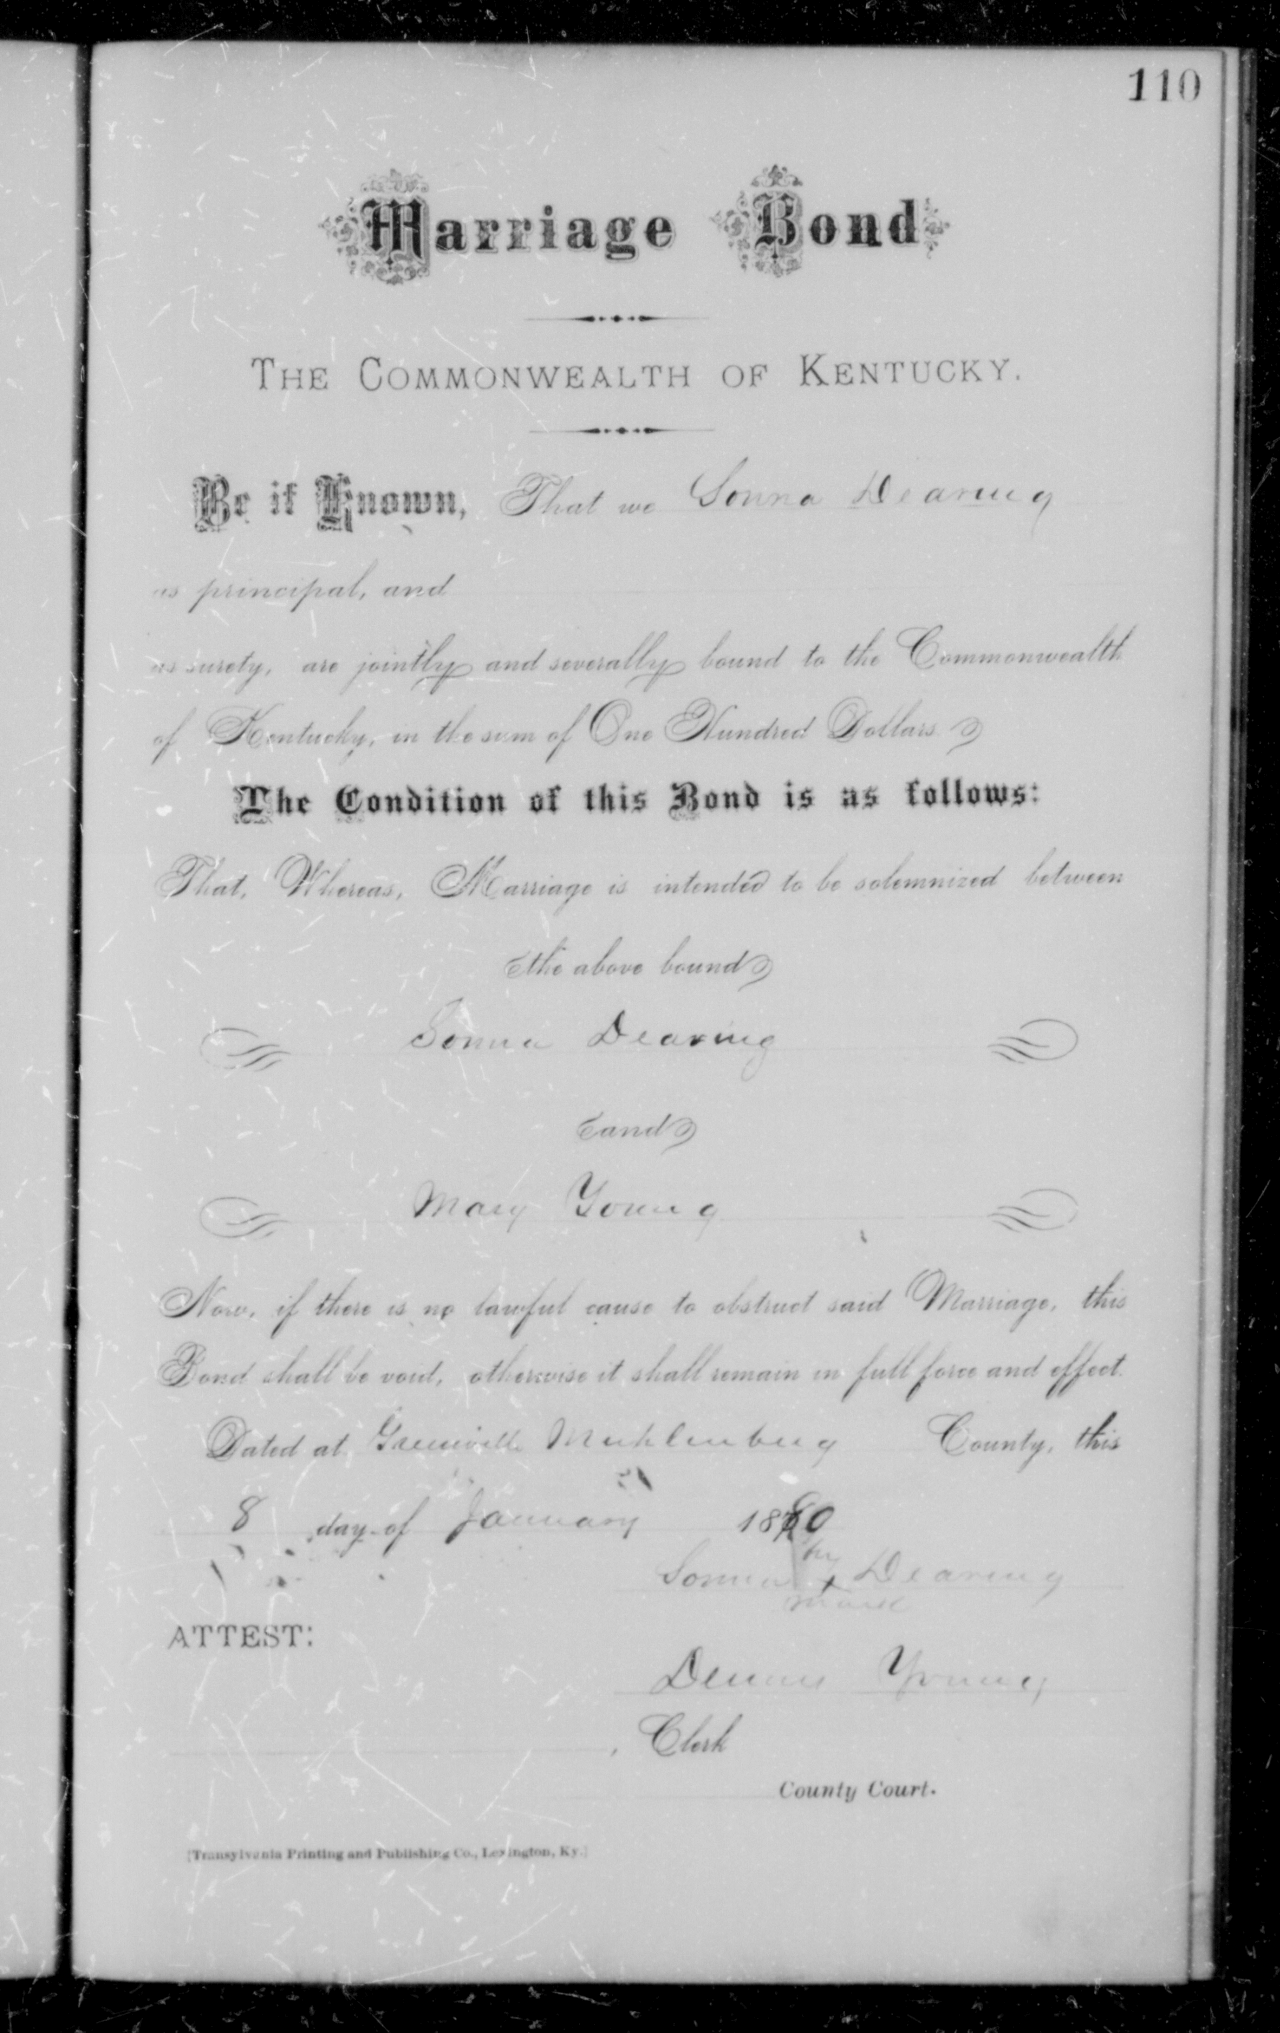 110
Marriage Bond
THE COMMONWEALTH OF KENTUCKY.
Be it Known, That we Sonna Dearing
as principal, and
as surety, are jointly and severally bound to the Commonwealth
of Kentucky, in the sum of One Hundred Dollars.
The Condition of this Bond is as follows:
That, Whereas, Marriage is intended to be solemnized between
the above bound
Sonna Dearing
and
Mary Young
Now, if there is no lawful cause to obstruct said Marriage, this
Bond shall be void, otherwise it shall remain in full force and effect.
Dated at Greenville Muhlenburg County, this
8 day of January 1880
his
Sonna + Dearing
mark
ATTEST:
Dennis Young
, Clerk
County Court.
[Transylvania Printing and Publishing Co., Lexington, Ky.]